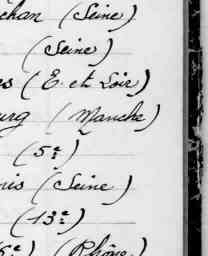 chan (Seine)
(Seine)
s (E. et Loir)
urg (Manche)
(5e)
nis (Seine)
(13e)
6e) (Rhône)